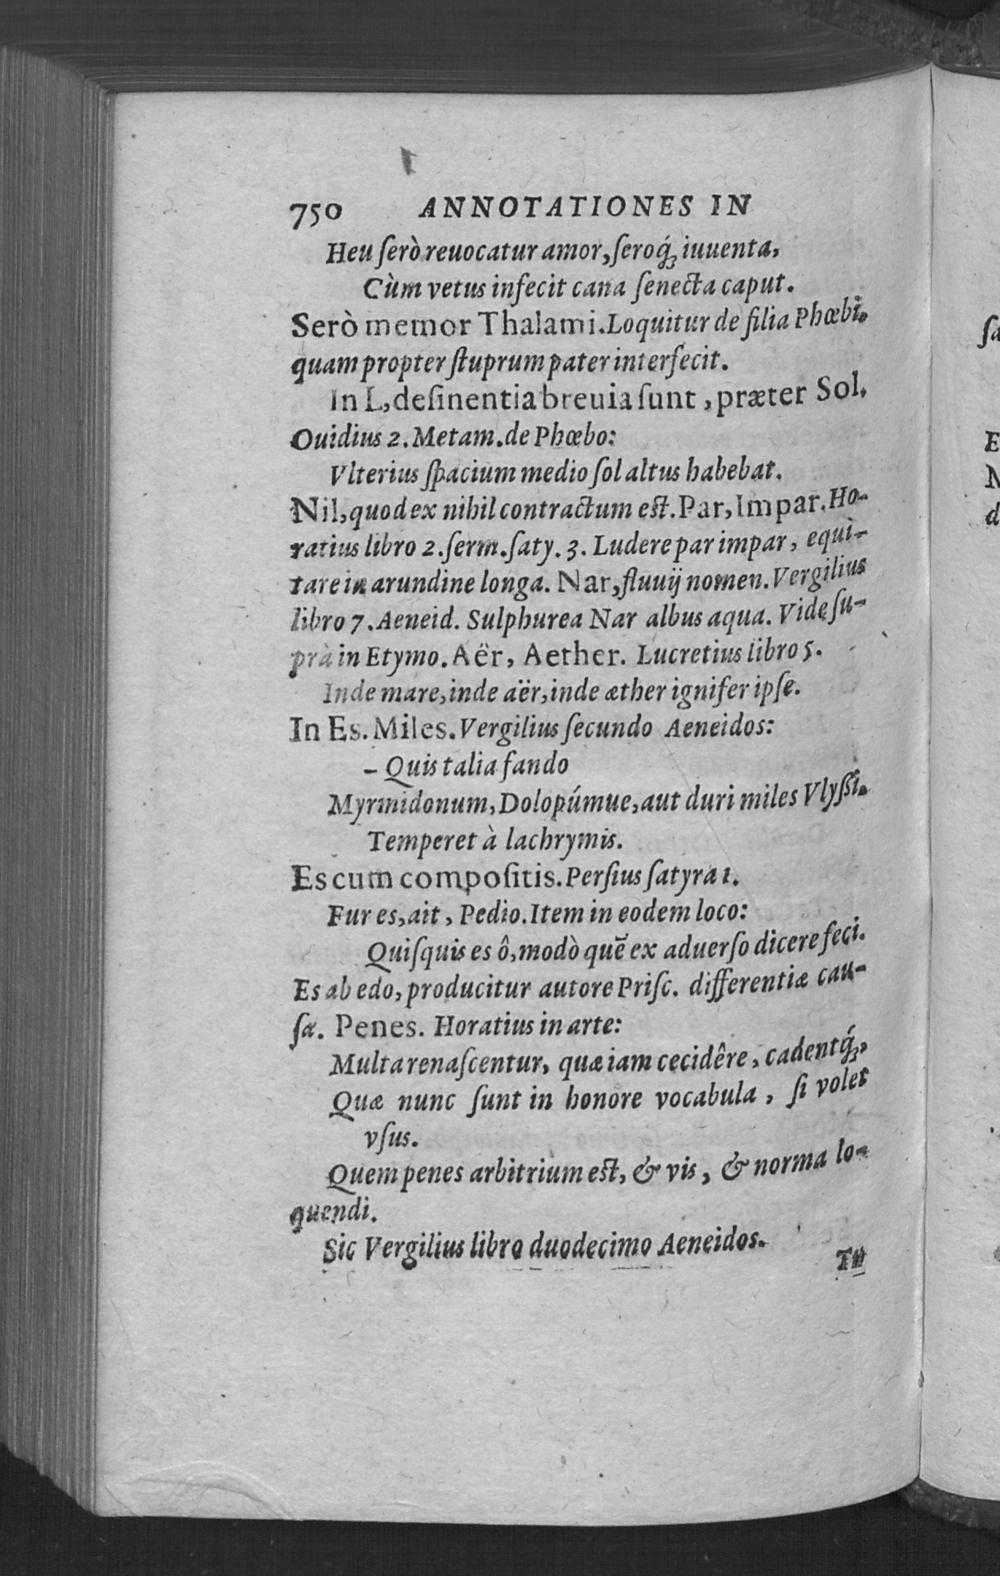 750 ANNOTATIONES IN
Heu ſerò reuocatur amor, ſeroq́; iuuenta,
Cùm vetus infecit cana ſenecta caput.
Serò memor Thalami. Loquitur de filia Phœbi,
quam propter ſtuprum pater interfecit.
In L, deſinentia breuia ſunt, præter Sol.
Ouidius 2. Metam. de Phœbo:
Vlterius ſpacium medio ſol altus habebat.
Nil, quod ex nihil contractum eſt. Par, Impar. Ho-
ratius libro 2. ſerm. ſaty. 3. Ludere par impar, equi-
tare in arundine longa. Nar, fluuij nomen. Vergilius
libro 7. Aeneid. Sulphurea Nar albus aqua. Vide ſu-
prà in Etymo. Aër, Aether. Lucretius libro 5.
Inde mare, inde aër, inde æther ignifer ipſe.
In Es. Miles. Vergilius ſecundo Aeneidos:
– Quis talia fando
Myrmidonum, Dolopúmue, aut duri miles Vlyßi,
Temperet à lachrymis.
Es cum compoſitis. Perſius ſatyra 1.
Fur es, ait, Pedio. Item in eodem loco:
Quiſquis es ô, modò quē ex aduerſo dicere feci.
Es ab edo, producitur autore Priſc. differentiæ cau-
ſæ. Penes. Horatius in arte:
Multa renaſcentur, quæ iam cecidêre, cadentq́;,
Quæ nunc ſunt in honore vocabula, ſi volet
vſus.
Quem penes arbitrium eſt, & vis, & norma lo-
quendi.
Sic Vergilius libro duodecimo Aeneidos.
Tu
ſa
E
N
d